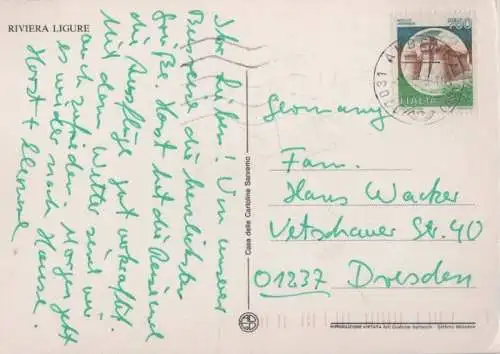 RIVIERA LIGURE
Ihr Lieben! Von unserer
Busreise die herzlichsten
Grüße. Horst hat die Reise und
die Ausflüge gut verkraftet.
Mit dem Wetter sind wir
auch zufrieden. Morgen geht
es wieder nach Hause.
Horst +
Casa della Cartolina Sanremo
750
ITALIA
Germany
Fam.
Hans Wacker
Vetschauer Str. 40
01237 Dresden
RIPRODUZIONE VIETATA